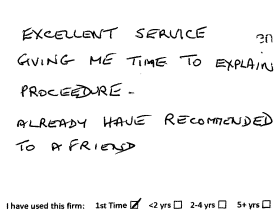 EXCELLENT SERVICE
GIVING ME TIME TO EXPLAIN
PROCEEDURE -
ALREADY HAVE RECOMMENDED
TO A FRIEND
I have used this firm: 1st Time ☑ <2 yrs ☐ 2-4 yrs ☐ 5+ yrs ☐